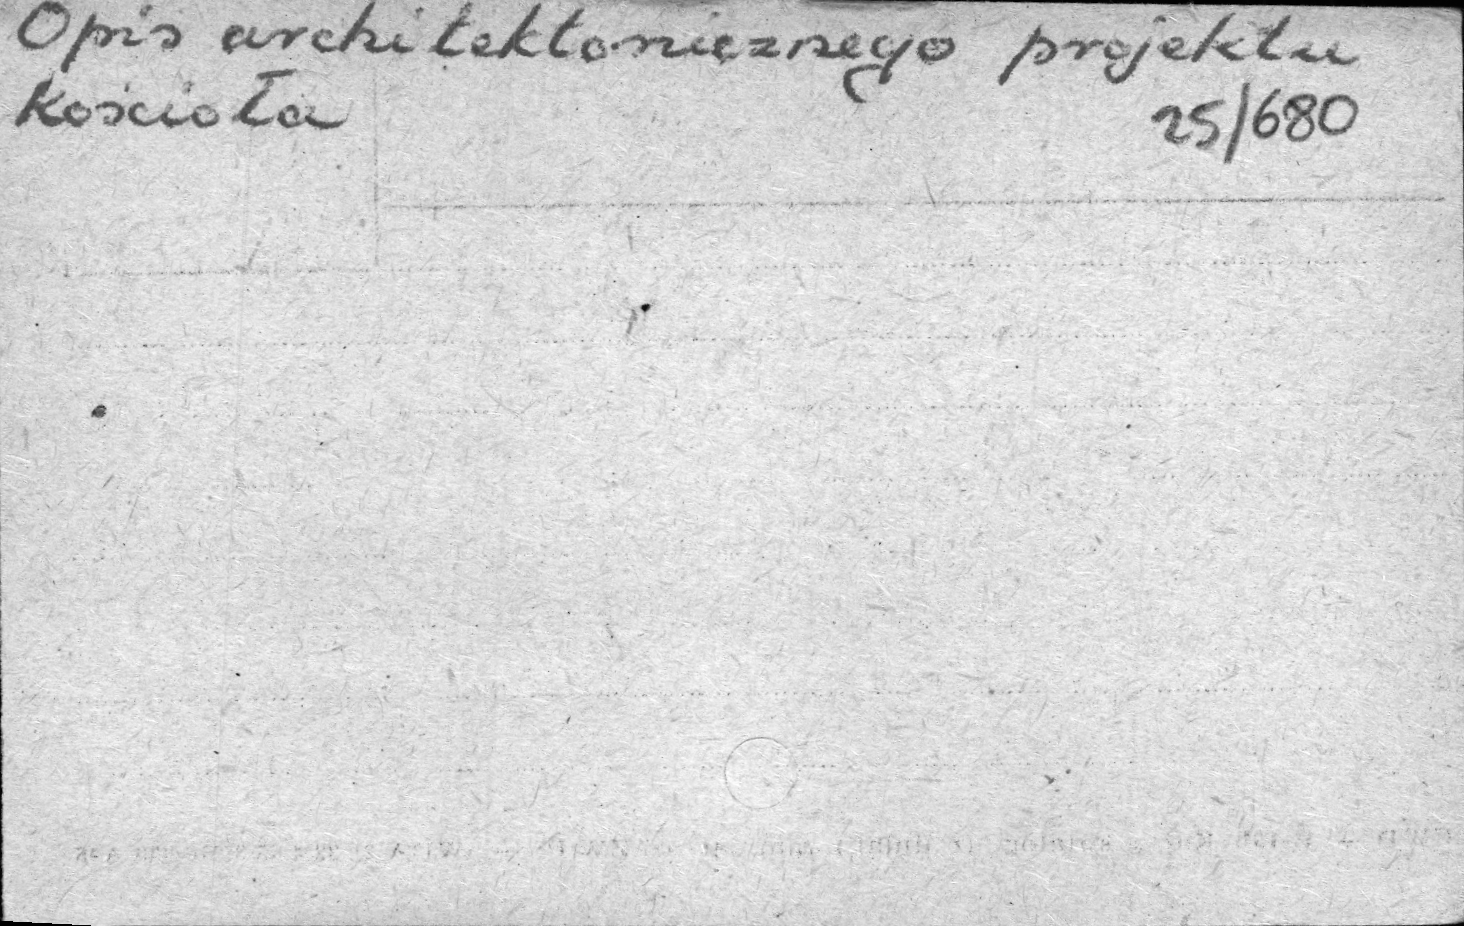 Opis architektonicznego projektu
Kościoła
25/680